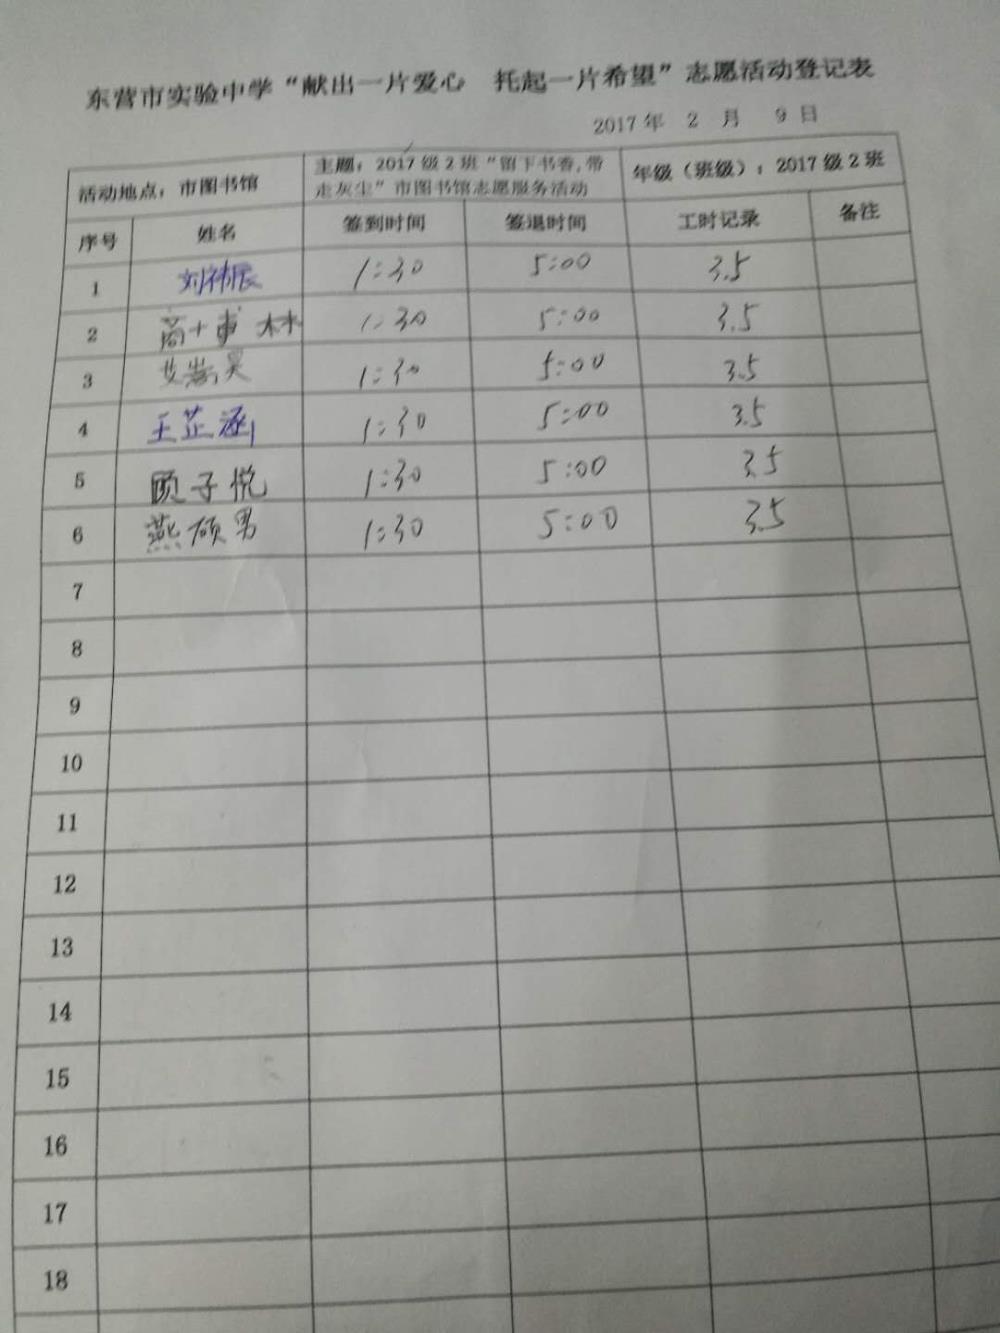 东营市实验中学“献出一片爱心 托起一片希望”志愿活动登记表
2017年 2 月 9 日
活动地点：市图书馆 主题：2017级2班“留下书香,带 年级（班级）：2017级2班
走灰尘”市图书馆志愿服务活动
序号 姓名 签到时间 签退时间 工时记录 备注
1 刘祎辰 1:30 5:00 3.5
2 1:30 5:00 3.5
3 1:30 5:00 3.5
4 王芷涵 1:30 5:00 3.5
5 顾子悦 1:30 5:00 3.5
6 燕硕男 1:30 5:00 3.5
7
8
9
10
11
12
13
14
15
16
17
18